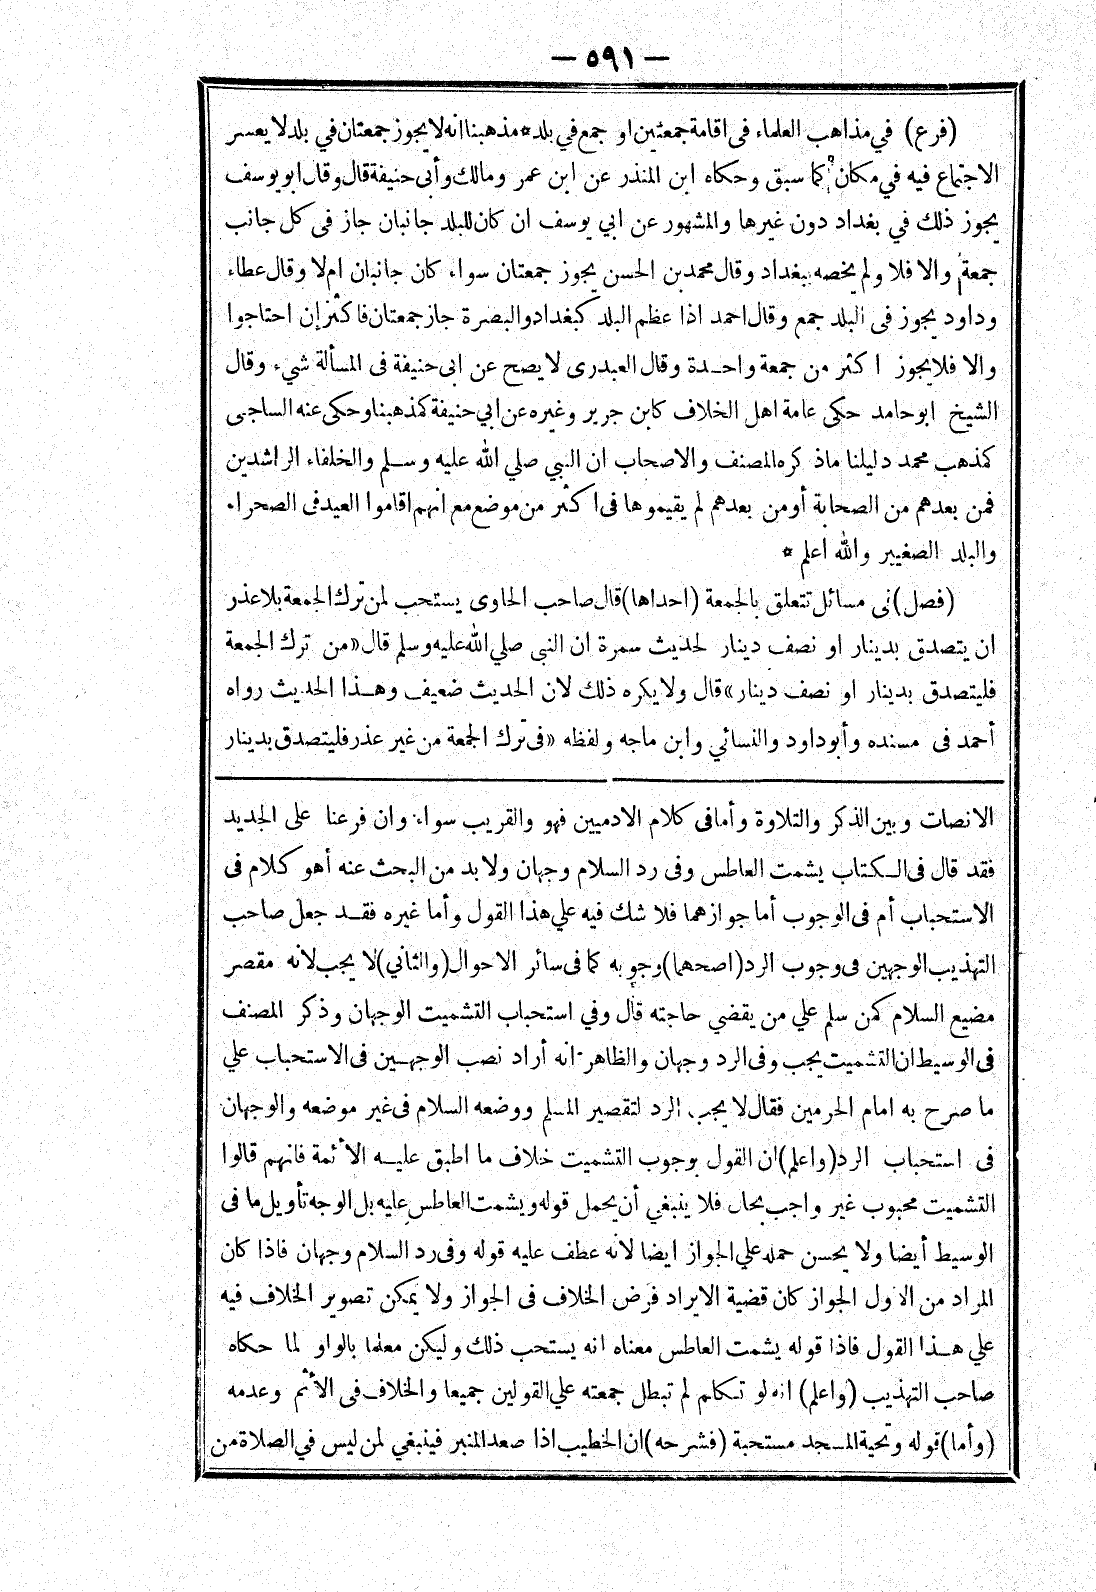 — ٥٩١ —
(فرع) في مذاهب العلماء فى اقامة جمعتين او جمع في بلد * مذهبنا انه لا يجوز جمعتان في بلد لا يعسر
الاجتماع فيه في مكان كما سبق وحكاه ابن المنذر عن ابن عمر ومالك وأبى حنيفة قال وقال ابو يوسف
يجوز ذلك في بغداد دون غيرها والمشهور عن ابي يوسف ان كان للبلد جانبان جاز فى كل جانب
جمعة والا فلا ولم يخصه ببغداد وقال محمد بن الحسن يجوز جمعتان سواء كان جانبان ام لا وقال عطاء
وداود يجوز فى البلد جمع وقال احمد اذا عظم البلد كبغداد والبصرة جاز جمعتان فاكثر إن احتاجوا
والا فلا يجوز اكثر من جمعة واحدة وقال العبدرى لا يصح عن ابى حنيفة فى المسألة شيء وقال
الشيخ ابو حامد حكى عامة اهل الخلاف كابن جرير وغيره عن ابي حنيفة كمذهبنا وحكى عنه الساجى
كمذهب محمد دليلنا ماذكره المصنف والاصحاب ان النبي صلي الله عليه وسلم والخلفاء الراشدين
فمن بعدهم من الصحابة أو من بعدهم لم يقيموها فى اكثر من موضع مع انهم اقاموا العيد فى الصحراء
والبلد الصغيير والله اعلم *
(فصل) فى مسائل تتعلق بالجمعة (احداها) قال صاحب الحاوى يستحب لمن ترك الجمعة بلا عذر
ان يتصدق بدينار او نصف دينار لحديث سمرة ان النبى صلي الله عليه وسلم قال «من ترك الجمعة
فليتصدق بدينار او نصف دينار» قال ولا يكره ذلك لان الحديث ضعيف وهذا الحديث رواه
أحمد فى مسنده وأبو داود والنسائي وابن ماجه ولفظه «فى ترك الجمعة من غير عذر فليتصدق بدينار
الانصات وبين الذكر والتلاوة وأما فى كلام الادميين فهو والقريب سواء وان فرعنا على الجديد
فقد قال فى الكتاب يشمت العاطس وفى رد السلام وجهان ولا بد من البحث عنه أهو كلام فى
الاستحباب أم فى الوجوب أما جوازهما فلا شك فيه علي هذا القول وأما غيره فقد جعل صاحب
التهذيب الوجهين فى وجوب الرد (اصحهما) وجوبه كما فى سائر الاحوال (والثاني) لا يجب لانه مقصر
مضيع السلام كمن سلم علي من يقضي حاجته قال وفي استحباب التشميت الوجهان وذكر المصنف
فى الوسيط ان التشميت يجب وفى الرد وجهان والظاهر انه أراد نصب الوجهين فى الاستحباب علي
ما صرح به امام الحرمين فقال لا يجب الرد لتقصير المسلم ووضعه السلام فى غير موضعه والوجهان
فى استحباب الرد (واعلم) ان القول بوجوب التشميت خلاف ما اطبق عليه الأئمة فانهم قالوا
التشميت محبوب غير واجب بحال فلا ينبغي أن يحمل قوله ويشمت العاطس عليه بل الوجه تأويل ما فى
الوسيط أيضا ولا يحسن حمله علي الجواز ايضا لانه عطف عليه قوله وفى رد السلام وجهان فاذا كان
المراد من الاول الجواز كان قضية الايراد فرض الخلاف فى الجواز ولا يمكن تصوير الخلاف فيه
علي هذا القول فاذا قوله يشمت العاطس معناه انه يستحب ذلك وليكن معلما بالواو لما حكاه
صاحب التهذيب (واعلم) انه لو تكلم لم تبطل جمعته علي القولين جميعا والخلاف فى الأثم وعدمه
(وأما) قوله وتحية المسجد مستحبة (فشرحه) ان الخطيب اذا صعد المنبر فينبغي لمن ليس في الصلاة من